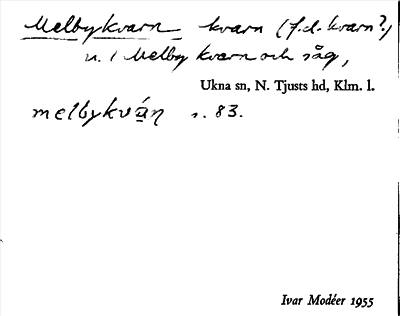 Melbykvarn kvarn (f.d. kvarn?)
u. / Melby kvarn och såg,
Ukna sn, N. Tjusts hd, Klm. l.
melbykván s. 83.
Ivar Modéer 1955